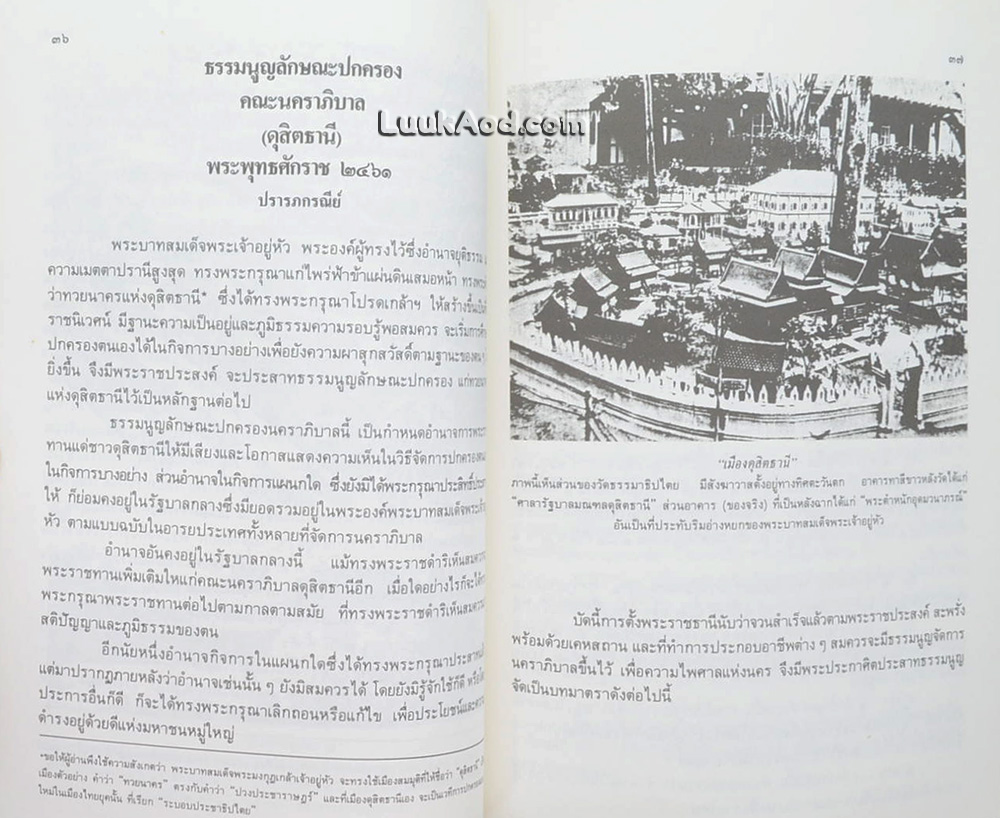 ๓๖
ธรรมนูญลักษณะปกครอง
คณะนคราภิบาล
(ดุสิตธานี)
พระพุทธศักราช ๒๔๖๑
ปรารภกรณีย์
LuukAod.com
พระบาทสมเด็จพระเจ้าอยู่หัว พระองค์ผู้ทรงไว้ซึ่งอำนาจยุติธรรม
ความเมตตาปรานีสูงสุด ทรงพระกรุณาแก่ไพร่ฟ้าข้าแผ่นดินเสมอหน้า
ว่าทวยนาครแห่งดุสิตธานี* ซึ่งได้ทรงพระกรุณาโปรดเกล้าฯ ให้สร้างขึ้น
ราชนิเวศน์ มีฐานะความเป็นอยู่และภูมิธรรมความรอบรู้พอสมควร จะเริ่มการ
ปกครองตนเองได้ในกิจการบางอย่างเพื่อยังความผาสุกสวัสดิ์ตามฐานะของตน
ยิ่งขึ้น จึงมีพระราชประสงค์ จะประสาทธรรมนูญลักษณะปกครอง
แห่งดุสิตธานีไว้เป็นหลักฐานต่อไป
ธรรมนูญลักษณะปกครองนคราภิบาลนี้ เป็นกำหนดอำนาจการ
ทานแด่ชาวดุสิตธานีให้มีเสียงและโอกาสแสดงความเห็นในวิธีจัดการปกครอง
ในกิจการบางอย่าง ส่วนอำนาจในกิจการแผนกใด ซึ่งยังมิได้พระกรุณา
ให้ ก็ย่อมคงอยู่ในรัฐบาลกลางซึ่งมียอดรวมอยู่ในพระองค์พระบาทสมเด็จ
หัว ตามแบบฉบับในอารยประเทศทั้งหลายที่จัดการนคราภิบาล
อำนาจอันคงอยู่ในรัฐบาลกลางนี้ แม้ทรงพระราชดำริเห็น
พระราชทานเพิ่มเติมให้แก่คณะนคราภิบาลดุสิตธานีอีก เมื่อใดอย่างไรก็จะได้
พระกรุณาพระราชทานต่อไปตามกาลตามสมัย ที่ทรงพระราชดำริเห็น
สติปัญญาและภูมิธรรมของตน
อีกนัยหนึ่งอำนาจกิจการในแผนกใดซึ่งได้ทรงพระกรุณา
แต่มาปรากฏภายหลังว่าอำนาจเช่นนั้น ๆ ยังมิสมควรได้ โดยยังมิรู้จักใช้ก็ดี
ประการอื่นก็ดี ก็จะได้ทรงพระกรุณาเลิกถอนหรือแก้ไข เพื่อประโยชน์
ดำรงอยู่ด้วยดีแห่งมหาชนหมู่ใหญ่
*ขอให้ผู้อ่านพึงใช้ความสังเกตว่า พระบาทสมเด็จพระมงกุฎเกล้าเจ้าอยู่หัว จะทรงใช้เมืองสมมุติที่ให้ชื่อว่า "ดุสิตธานี"
เมืองตัวอย่าง คำว่า "ทวยนาคร" ตรงกับคำว่า "ปวงประชาราษฎร์" และที่เมืองดุสิตธานีเอง
ใหม่ในเมืองไทยยุคนั้น ที่เรียก "ระบอบประชาธิปไตย"
๓๗
"เมืองดุสิตธานี"
ภาพนี้เห็นส่วนของวัดธรรมาธิปไตย มีสังฆาวาสตั้งอยู่ทางทิศตะวันตก อาคารทาสีขาวหลังวัดได้แก่
"ศาลารัฐบาลมณฑลดุสิตธานี" ส่วนอาคาร (ของจริง) ที่เป็นหลังฉากได้แก่ "พระตำหนักอุดมวนาภรณ์"
อันเป็นที่ประทับริมอ่างหยกของพระบาทสมเด็จพระเจ้าอยู่หัว
บัดนี้การตั้งพระราชธานีนับว่าจวนสำเร็จแล้วตามพระราชประสงค์ สะพรั่ง
พร้อมด้วยเคหสถาน และที่ทำการประกอบอาชีพต่าง ๆ สมควรจะมีธรรมนูญจัดการ
นคราภิบาลขึ้นไว้ เพื่อความไพศาลแห่งนคร จึงมีพระประกาศิตประสาทธรรมนูญ
จัดเป็นบทมาตราดังต่อไปนี้